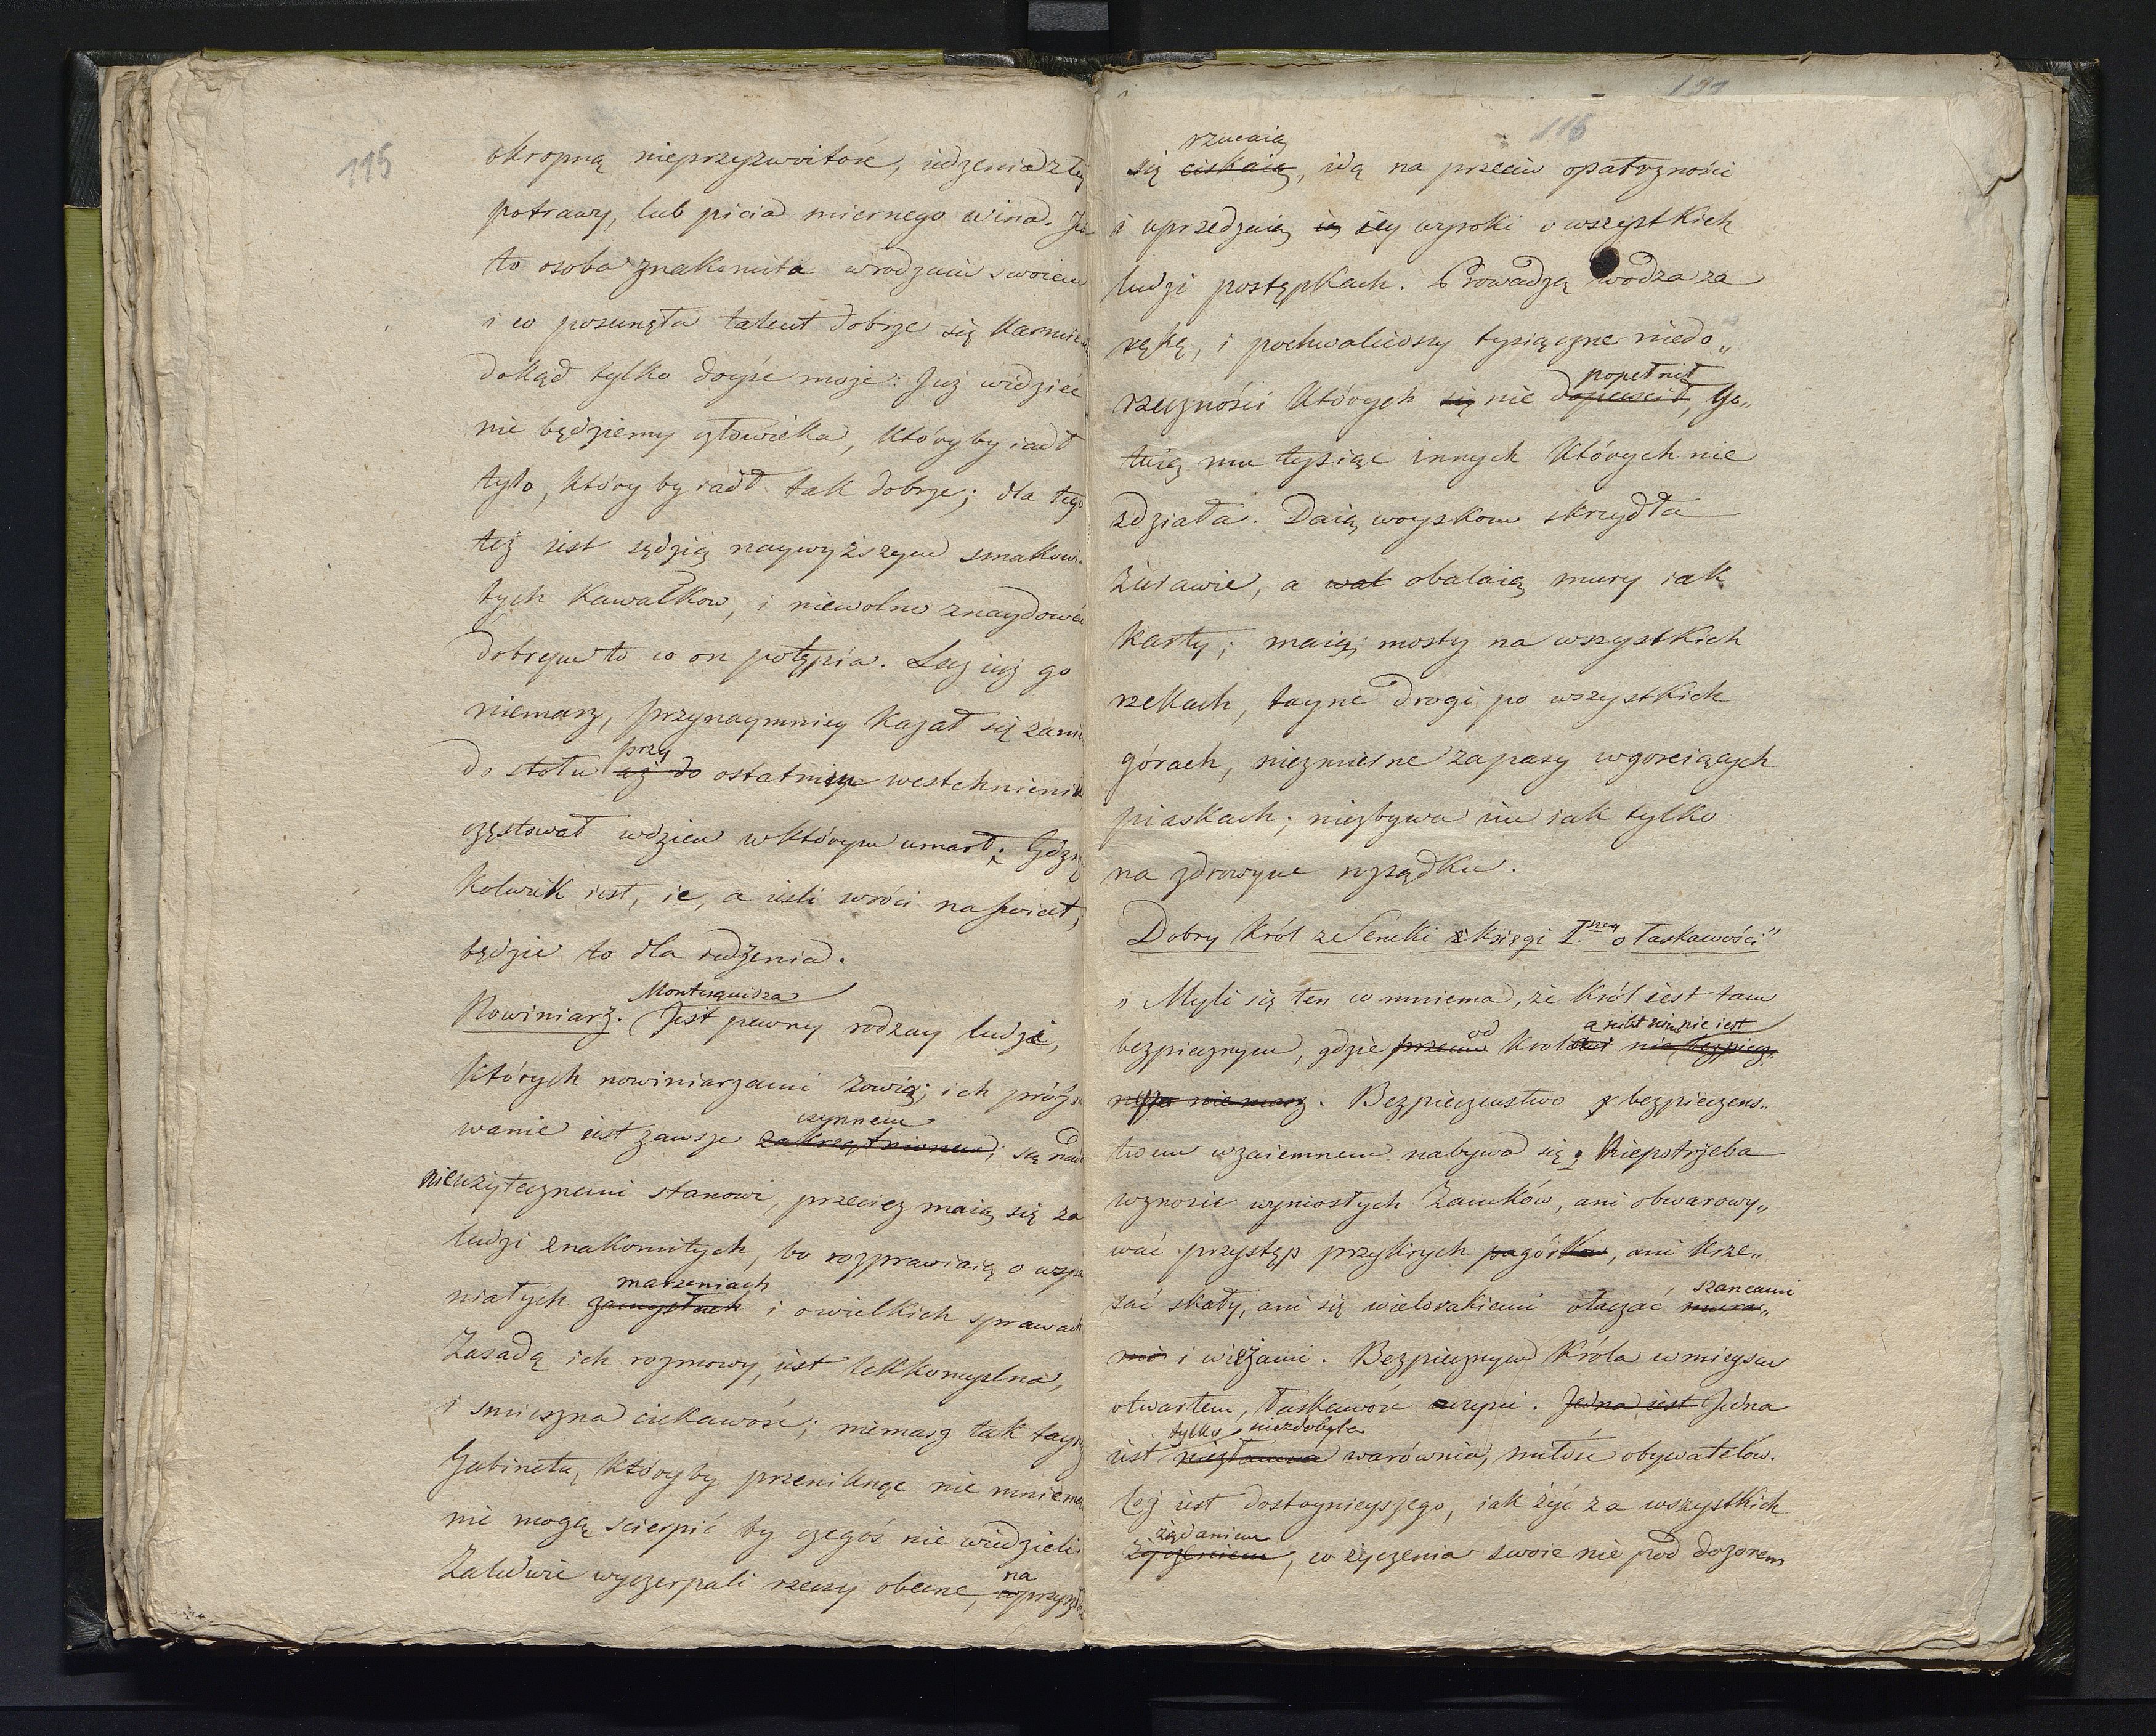 115
okropną nieprzyzwoitość, iedzenia złey
potrawy, lub picia miernego wina. Je
to osoba znakomita w rodzaiu swoiem
i co posunęła talent dobrze się karmie
dokąd tylko doyść może: Już widzieć
nie będziemy człowieka, któryby iadł
tyło, który by iadł tak dobrze; dla tego
też iest sędzią naywyższym smakowi
tych kawałkow, i niewolno znaydować
dobrym to co on potępia. Lecz iuż go
niemasz, przynaymniey kazał się zanie
przy
do stołu aż do ostatniem westchnieni
częstował w dzien w którym umarł; Gdzie
kolwiek iest, ie, a ieśli wróci na świat,
będzie to dla iedzenia.
Montesquisza
Nowiniarz. Jest pewny rodzay ludzi,
których nowiniarzami zowią; ich próżno
czynnem
wanie iest zawsze zakrzątnionem; są nad
nieużytecznemi stanowi, przeciez maią się za
ludzi znakomitych, bo rozprawiaią o wspa
marzeniach
niałych zamysłach i o wielkich sprawach
Zasadą ich rozmowy, iest lekkomyślna,
i smieszna ciekawość; niemasz tak tayne
Gabinetu, któryby przeniknąć nie mniema
nie mogą scierpić by czegoś nie wiedzieli
na
Zaledwie wyczerpali rzeczy obecne, w przyszło
191
116
rzucaią
się ciskaią, idą na przeciw opatrzności
i uprzedzaią iey wyroki o wszystkich
ludzi postępkach. Prowadzą wodza za
rękę, i pochwaliwszy tysiączne niedo„
popełnił
rzeczności których się nie dopuscił, Go„
tuią mu tysiąc innych których nie
zdziała. Daią woyskom skrzydła
żurawie, a wał obalaią mury iak
karty; maią mosty na wszystkich
rzekach, tayne drogi po wszystkich
górach, niezmierne zapasy w goreiących
piaskach; niezbywa im iak tylko
na zdrowym rozsądku.
Dobry Król z Seneki z księgi I.szey o łaskawości"
„ Myli się ten co mniema, że Król iest tam
od a nikt nie iest
bezpiecznym, gdzie przeciw Krola nic bezpiecz„
nego nie masz. Bezpieczeństwo z bezpieczeńs„
twem wzaiemnem nabywa się; Niepotrzeba
wznosić wyniosłych Zamków, ani obwarowy„
wać przystęp przykrych pagórków, ani krze„
szancami
sać skały, ani się wielorakiemi otaczać mura„
mi i wieżami. Bezpiecznym Króla w mieyscu
otwartem, łaskawość czyni. Jedna iest Jedna
tylko niezdobyta
iest warównia, miłość obywatelow.
Coż iest dostoynieyszego, iak żyć za wszystkich
żądaniem
życzeniem, co życzenia swoie nie pod dozorem